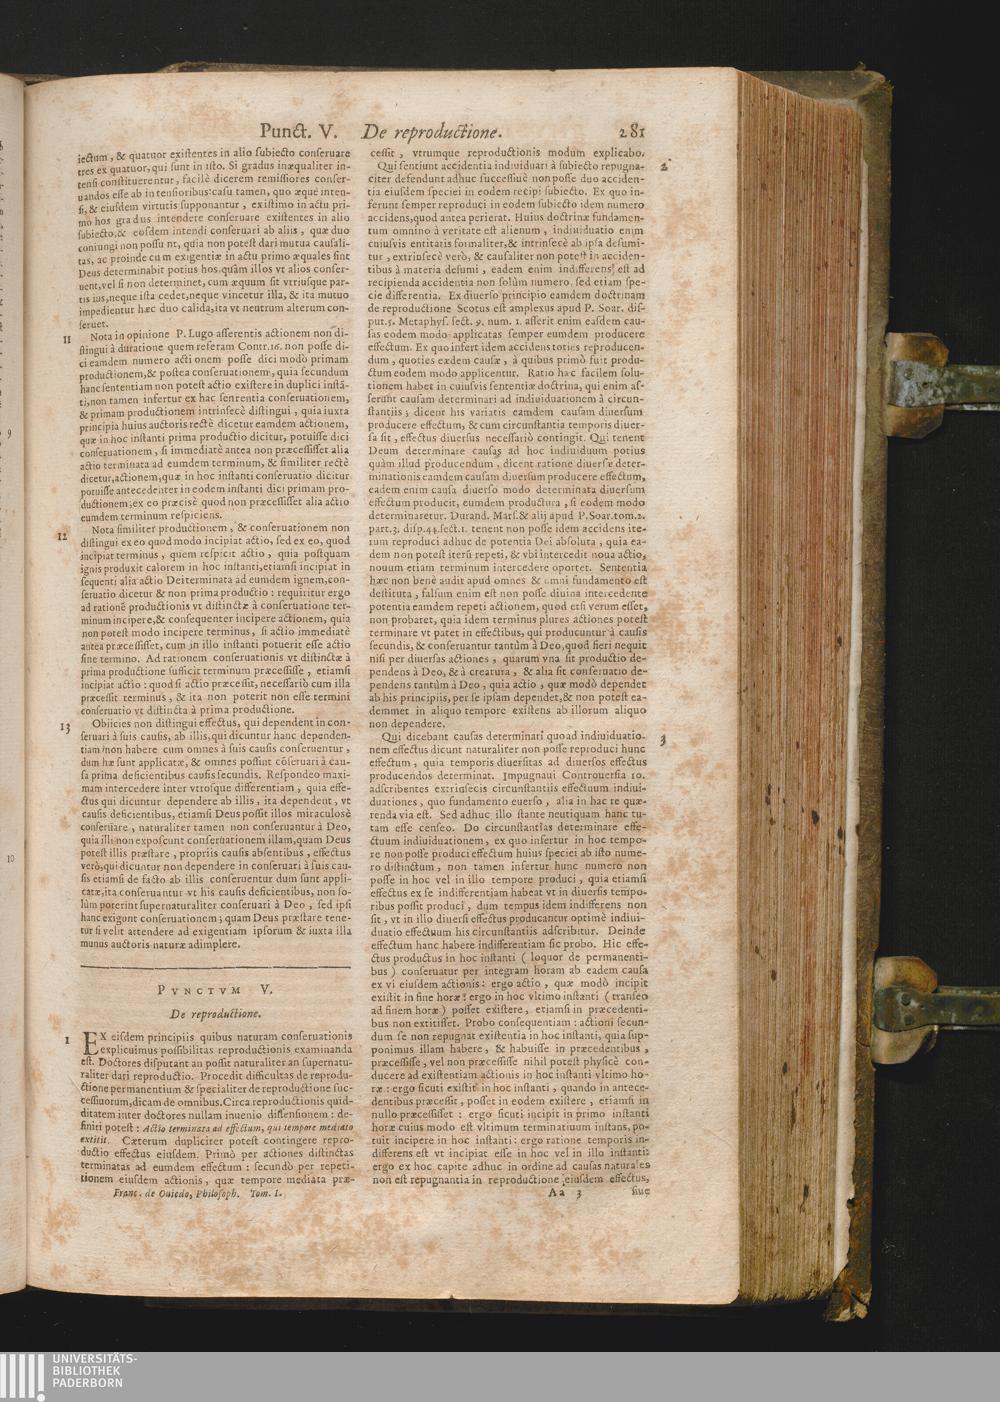 Punct. V. De reproductione. 281
iectum, & quatuor existentes in alio subiecto conseruare
tres ex quatuor, qui sunt in isto. Si gradus inæqualiter in-
tensi constituerentur, facilè dicerem remissiores conser-
uandos esse ab intensioribus: casu tamen, quo æque inten-
si, & eiusdem virtutis supponantur, existimo in actu pri-
mo hos gradus intendere conseruare existentes in alio
subiecto, & eosdem intendi conseruari ab aliis, quæ duo
coniungi non possunt, quia non potest dari mutua causali-
tas, ac proinde cum exigentiæ in actu primo æquales sint
Deus determinabit potius hos, quàm illos vt alios conser-
uent, vel si non determinet, cum æquum sit vtriusque par-
tis ius, neque ista cedet, neque vincetur illa, & ita mutuo
impedientur hæc duo calida, ita vt neutrum alterum con-
seruet.
11 Nota in opinione P. Lugo asserentis actionem non di-
stingui à duratione quem referam Contr. 16. non posse di-
ci eamdem numero actionem posse dici modò primam
productionem, & postea conseruationem, quia secundum
hanc sententiam non potest actio existere in duplici instā-
ti, non tamen infertur ex hac sententia conseruationem,
& primam productionem intrinsecè distingui, quia iuxta
principia huius auctoris rectè dicetur eamdem actionem,
quæ in hoc instanti prima productio dicitur, potuisse dici
conseruationem, si immediatè antea non præcessisset alia
actio terminata ad eumdem terminum, & similiter rectè
dicetur, actionem, quæ in hoc instanti conseruatio dicitur
potuisse antecedenter in eodem instanti dici primam pro-
ductionem, ex eo præcisè quod non præcessisset alia actio
eumdem terminum respiciens.
12 Nota similiter productionem, & conseruationem non
distingui ex eo quod modo incipiat actio, sed ex eo, quod
incipiat terminus, quem respicit actio, quia postquam
ignis produxit calorem in hoc instanti, etiamsi incipiat in
sequenti alia actio Dei terminata ad eumdem ignem, con-
seruatio dicetur & non prima productio: requiritur ergo
ad rationē productionis vt distinctæ à conseruatione ter-
minum incipere, & consequenter incipere actionem, quia
non potest modo incipere terminus, si actio immediatè
antea præcessisset, cum in illo instanti potuerit esse actio
sine termino. Ad rationem conseruationis vt distinctæ à
prima productione sufficit terminum præcessisse, etiamsi
incipiat actio: quod si actio præcessit, necessariò cum illa
præcessit terminus, & ita non poterit non esse termini
conseruatio vt distincta à prima productione.
13 Obiicies non distingui effectus, qui dependent in con-
seruari à suis causis, ab illis, qui dicuntur hanc dependen-
tiam non habere cum omnes à suis causis conseruentur,
dum hæ sunt applicatæ, & omnes possint cōseruari à cau-
sa prima deficientibus causis secundis. Respondeo maxi-
mam intercedere inter vtrosque differentiam, quia effe-
ctus qui dicuntur dependere ab illis, ita dependent, vt
causis deficientibus, etiamsi Deus possit illos miraculosè
conseruare, naturaliter tamen non conseruantur à Deo,
quia illi non exposcunt conseruationem illam, quam Deus
potest illis præstare, propriis causis absentibus, effectus
verò, qui dicuntur non dependere in conseruari à suis cau-
sis etiamsi de facto ab illis conseruentur dum sunt appli-
catæ, ita conseruantur vt his causis deficientibus, non so-
lùm poterint supernaturaliter conseruari à Deo, sed ipsi
hanc exigunt conseruationem; quam Deus præstare tene-
tur si velit attendere ad exigentiam ipsorum & iuxta illa
munus auctoris naturæ adimplere.
PVNCTVM V.
De reproductione.
1 EX eisdem principiis quibus naturam conseruationis
explicuimus possibilitas reproductionis examinanda
est. Doctores disputant an possit naturaliter an supernatu-
raliter dari reproductio. Procedit difficultas de reprodu-
ctione permanentium & specialiter de reproductione suc-
cessiuorum, dicam de omnibus. Circa reproductionis quid-
ditatem inter doctores nullam inuenio dissensionem: de-
finiri potest: Actio terminata ad effectum, qui tempore mediato
extitit. Cæterum dupliciter potest contingere repro-
ductio effectus eiusdem. Primò per actiones distinctas
terminatas ad eumdem effectum: secundò per repeti-
tionem eiusdem actionis, quæ tempore mediata præ-
Franc. de Ouiedo, Philosoph. Tom. I.
cessit, vtrumque reproductionis modum explicabo.
2 Qui sentiunt accidentia indiuiduari à subiecto repugna-
citer defendunt adhuc successiuè non posse duo acciden-
tia eiusdem speciei in eodem recipi subiecto. Ex quo in-
ferunt semper reproduci in eodem subiecto idem numero
accidens, quod antea perierat. Huius doctrinæ fundamen-
tum omnino à veritate est alienum, indiuiduatio enim
cuiusvis entitatis formaliter, & intrinsecè ab ipsa desumi-
tur, extrinsecè verò, & causaliter non potest in acciden-
tibus à materia desumi, eadem enim indifferens est ad
recipienda accidentia non solùm numero, sed etiam spe-
cie differentia. Ex diuerso principio eamdem doctrinam
de reproductione Scotus est amplexus apud P. Soar. dis-
put. 5. Metaphys. sect. 9. num. 1. asserit enim easdem cau-
sas eodem modo applicatas semper eumdem producere
effectum. Ex quo infert idem accidens toties reproducen-
dum, quoties eædem causæ, à quibus primò fuit produ-
ctum eodem modo applicentur. Ratio hæc facilem solu-
tionem habet in cuiusvis sententiæ doctrina, qui enim as-
serunt causam determinari ad indiuiduationem à circun-
stantiis; dicent his variatis eamdem causam diuersum
producere effectum, & cum circunstantia temporis diuer-
sa sit, effectus diuersus necessariò contingit. Qui tenent
Deum determinare causas ad hoc indiuiduum potius
quàm illud producendum, dicent ratione diuersæ deter-
minationis eamdem causam diuersum producere effectum,
eadem enim causa diuerso modo determinata diuersum
effectum producit, eumdem productura, si eodem modo
determinaretur. Durand. Mars. & alij apud P. Soar. tom. 2.
part. 3. disp. 44. sect. 1. tenent non posse idem accidens ite-
rum reproduci adhuc de potentia Dei absoluta, quia ea-
dem non potest iterū repeti, & vbi intercedit noua actio,
nouum etiam terminum intercedere oportet. Sententia
hæc non benè audit apud omnes & omni fundamento est
destituta, falsum enim est non posse diuina intercedente
potentia eamdem repeti actionem, quod etsi verum esset,
non probaret, quia idem terminus plures actiones potest
terminare vt patet in effectibus, qui producuntur à causis
secundis, & conseruantur tantùm à Deo, quod fieri nequit
nisi per diuersas actiones, quarum vna sit productio de-
pendens à Deo, & à creatura, & alia sit conseruatio de-
pendens tantùm à Deo, quia actio, quæ modò dependet
ab his principiis, per se ipsam dependet, & non potest ea-
demmet in aliquo tempore existens ab illorum aliquo
non dependere.
3 Qui dicebant causas determinari quoad indiuiduatio-
nem effectus dicunt naturaliter non posse reproduci hunc
effectum, quia temporis diuersitas ad diuersos effectus
producendos determinat. Impugnaui Controuersia 10.
adscribentes extrinsecis circunstantiis effectuum indiui-
duationes, quo fundamento euerso, alia in hac re quæ-
renda via est. Sed adhuc illo stante neutiquam hanc tu-
tam esse censeo. Do circunstantias determinare effe-
ctuum indiuiduationem, ex quo infertur in hoc tempo-
re non posse produci effectum huius speciei ab isto nume-
ro distinctum, non tamen infertur hunc numero non
posse in hoc vel in illo tempore produci, quia etiamsi
effectus ex se indifferentiam habeat vt in diuersis tempo-
ribus possit produci, dum tempus idem indifferens non
sit, vt in illo diuersi effectus producantur optimè indiui-
duatio effectuum his circunstantiis adscribitur. Deinde
effectum hanc habere indifferentiam sic probo. Hic effe-
ctus productus in hoc instanti (loquor de permanenti-
bus) conseruatur per integram horam ab eadem causa
ex vi eiusdem actionis: ergo actio, quæ modò incipit
existit in fine horæ: ergo in hoc vltimo instanti (transeo
ad finem horæ) posset existere, etiamsi in præcedenti-
bus non extitisset. Probo consequentiam: actioni secun-
dum se non repugnat existentia in hoc instanti, quia sup-
ponimus illam habere, & habuisse in præcedentibus,
præcessisse, vel non præcessisse nihil potest physicè con-
ducere ad existentiam actionis in hoc instanti vltimo ho-
ræ: ergo sicuti existit in hoc instanti, quando in antece-
dentibus præcessit, posset in eodem existere, etiamsi in
nullo præcessisset: ergo sicuti incipit in primo instanti
horæ cuius modo est vltimum terminatiuum instans, po-
tuit incipere in hoc instanti: ergo ratione temporis in-
differens est vt incipiat esse in hoc vel in illo instanti:
ergo ex hoc capite adhuc in ordine ad causas naturales
non est repugnantia in reproductione eiusdem effectus,
Aa 3 siue
9
10
UNIVERSITÄTS-
BIBLIOTHEK
PADERBORN